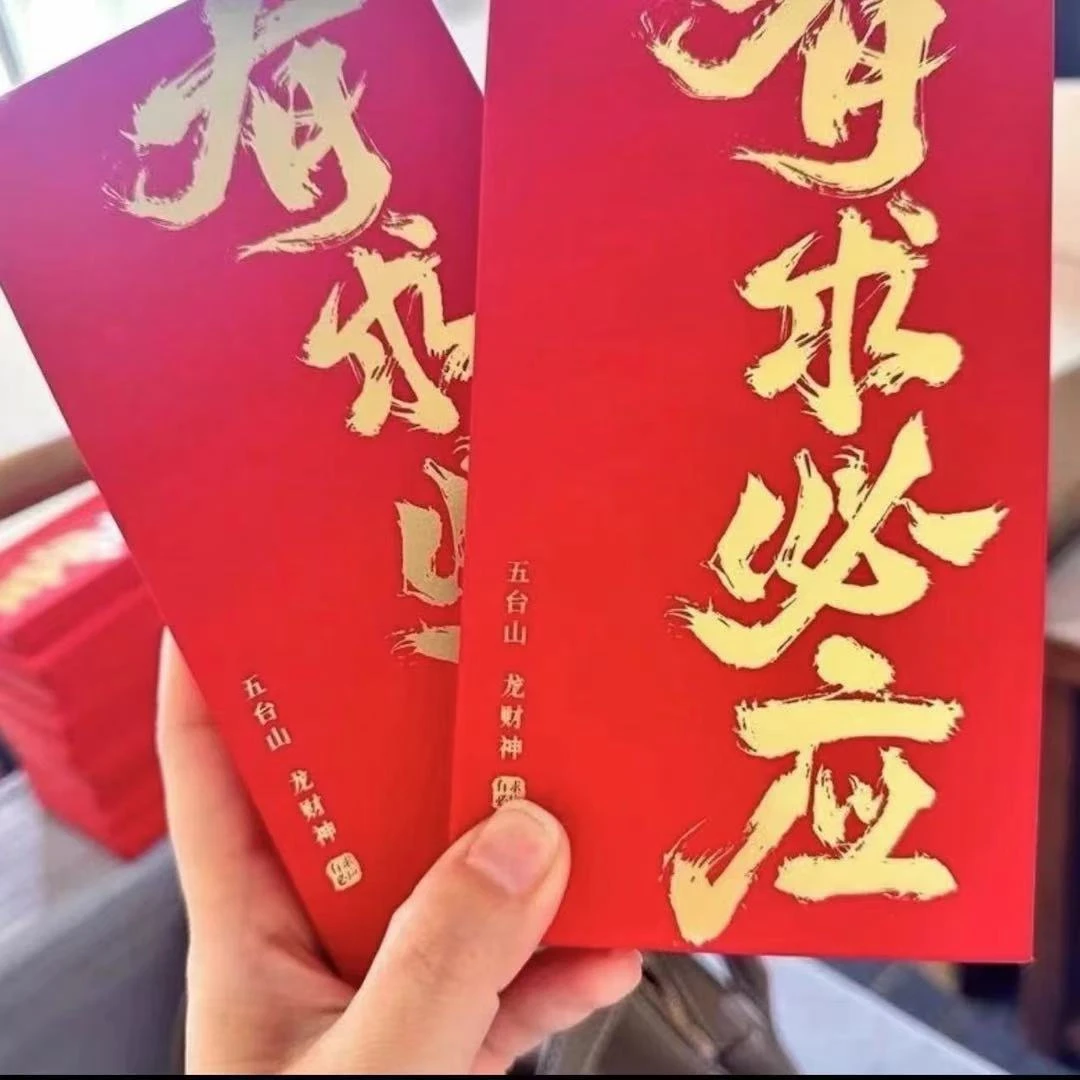 有求必
五台山 龙财神
有求必应
五台山 龙财神